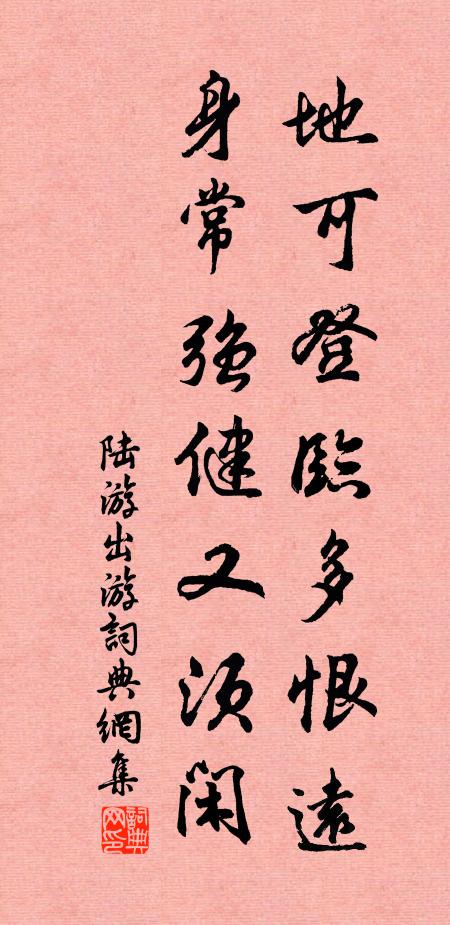 地可登臨多恨遠
身常强健又須閑
陆游出游詞典網集
詞典网印